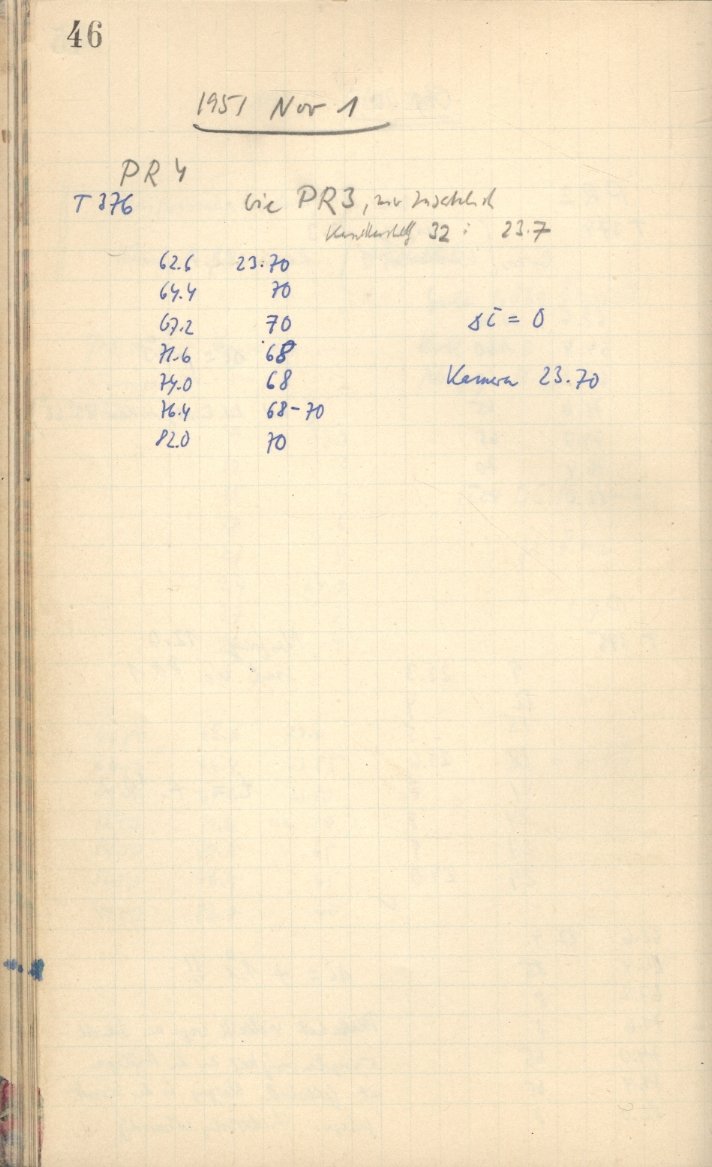 46
1951 Nov 1
PR 4
T 376 wie PR3, nur zusätzlich
32: 23.7
62.6 23.70
64.4 70
67.2 70
71.6 68
74.0 68
76.4 68-70
82.0 70
= 0
Kamera 23.70